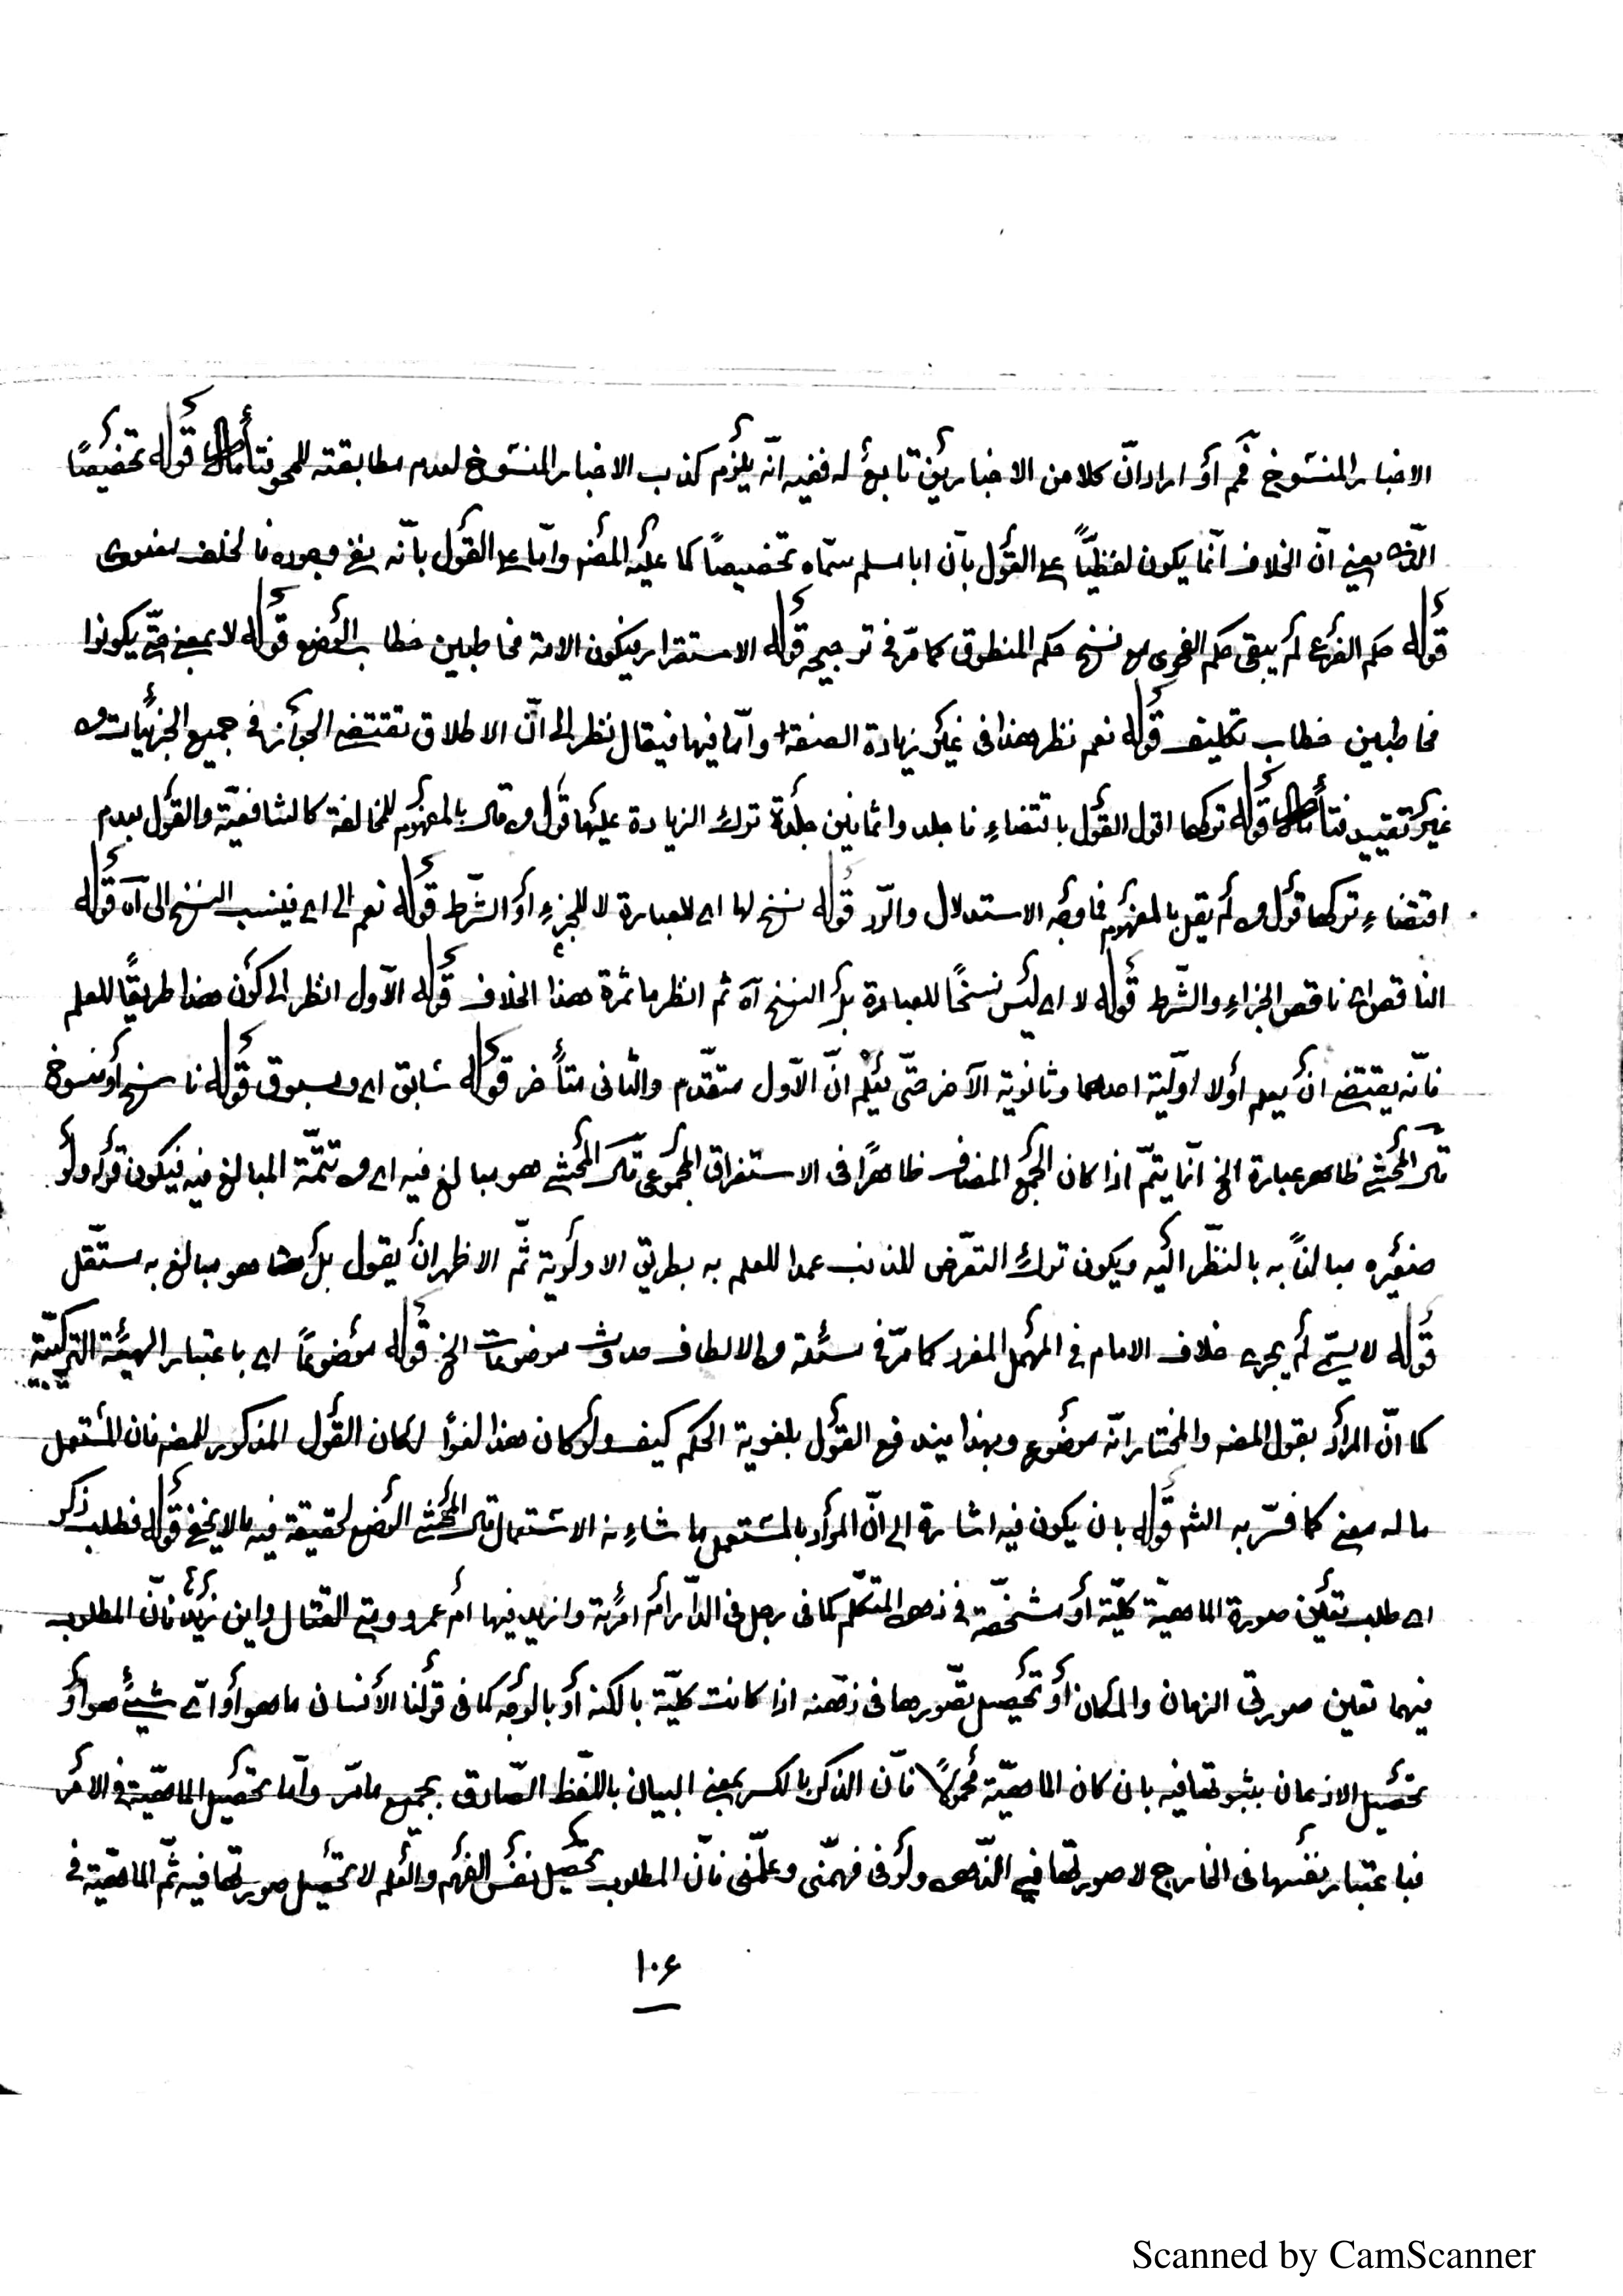 الاخبار المنسوخ فمم أو اراد انّ كلا من الاخبارين تابع له ففيه انّه يلزم كذب الاخبار المنسوخ لعدم مطابقته للمحو فتأمل قوله تخصيصًا
يعني انّ الخلاف انّما يكون لفظيّاً على القول بأن ابا مسلم سمّاه تخصيصًا كما عليه المص وامّا على القول بأنّه نفى وجوده فالخلف معنوى
قوله حكم الفرع لم يبقى حكم الفحوى مع نسخ حكم المنطوق كما مرّ فى توجيه قوله الاستقرار فيكون الامة مخاطبين خطاب الوضع قوله لا بمعنى حتّى يكونوا
مخاطبين خطاب تكليف قوله نعم نظر هذا فى غير زيادة الصفة وامّا فيها فيقال نظر الى انّ الاطلاق تقتضى الجواز فى جميع الجزئيات من
غير تقييد فتأمل قوله تركها اقول القول باقتضاء فاجلدوا ثمانين جلدة ترك الزيادة عليها قول من قال بالمفهوم المخالفة كالشافعيّة والقول بعدم
اقتضاء تركها قول من لم يقل بالمفهوم فما وجه الاستدلال والرّد قوله نسخ لها اى للعبارة لا للجزء أو الشّرط قوله نعم الى اى فينسب النسخ الى آه قوله
الناقص اى ناقص الجزاء والشّرط قوله لا اى ليس نسخًا للعبادة بل النسخ آه ثم انظر ما ثمرة هذا الخلاف قوله الأول انظر الى كون هذا طريقًا للعلم
فانّه يقتضى ان يعلم أولا اوّلية احدهما وثانوية الآخر حتّى يعلم انّ الأول متقدّم والثانى متأخر قوله سابق اى ومسبوق قوله ناسخ أو منسوخ
قال المحشى ظاهر عبارة الخ انّما يتمّ اذا كان الجمع المضاف ظاهرًا فى الاستغراق المجموعى قال المحشى هو مبالغ فيه اى من تتمّة المبالغ فيه فيكون قوله ولو
صغيره مبالغاً به بالنظّر اليه ويكون ترك التعرّض للذنب عمدا للعلم به بطريق الاولوية ثمّ الاظهر ان يقول بل هو مبالغ به مستقل
قوله لا يسمّى لم يجر خلاف الامام فى المهمل المفرد كما مرّ فى مسئلة من الالطاف حدوث موضوعات الخ قوله موضوعاً اى باعتبار الهيئة التركيبية
كما انّ المراد بقول المص والمختار انّه موضوع وبهذا يندفع القول بلغوية الحكم كيف ولو كان هذا لغوًا لكان القول المذكور للمص فان المستعمل
ما له معنى كما فسّر به الشم قوله بان يكون فيه اشارة الى انّ المراد بالمستعمل ما شاءنه الاستعمال قال المحشى الوضع لحقيقة فيه ما لا يخفى قوله فطلب ذكر
اى طلب تعيّن صورة الماهيّة كلّية أو مشخّصة فى ذهن المتكلّم كما فى رجل فى الدّار أم امرأة وازيد فيها ام عمرو ومتى القتال واين زيد فانّ المطلوب
فيهما تعين صورتى الزمان والمكان أو تحصيل تصّورها فى ذهنه اذا كانت كلّية بالكنه أو بالوجه كما فى قولنا الأنسان ما هو أو اىّ شيئ هو أو
تحصيل الاذعان بثبوتها فيه بان كان الماهيّة محمولًا فانّ الذكر بالكسر بمعنى البيان باللفظ الصّادق بجميع ما مرّ وأمّا تحصيل الماهيّة فى الأمر
فباعتبار نفسها فى الخارج لا صورتها فى الذّهن ولو فى فهمّنى وعلّمنى فانّ المطلوب تحصيل نفس الفهم والعلم لا تحصيل صورتها فيه ثمّ الماهيّة فى
١٠٦
Scanned by CamScanner